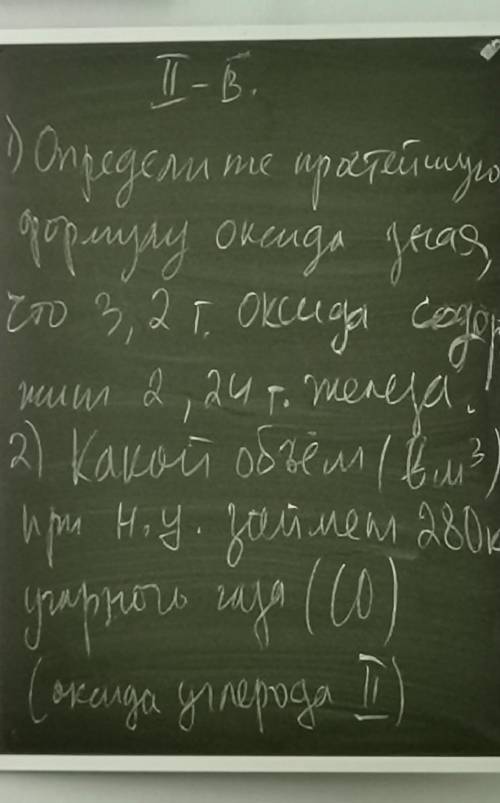 II-В.
1) Определите простейшую
формулу оксида зная,
что 3,2 г. оксида содер
жит 2,24 г. железа.
2) Какой объём (в м³)
при н.у. займет 280к
угарного газа (CO)
(оксида углерода II)